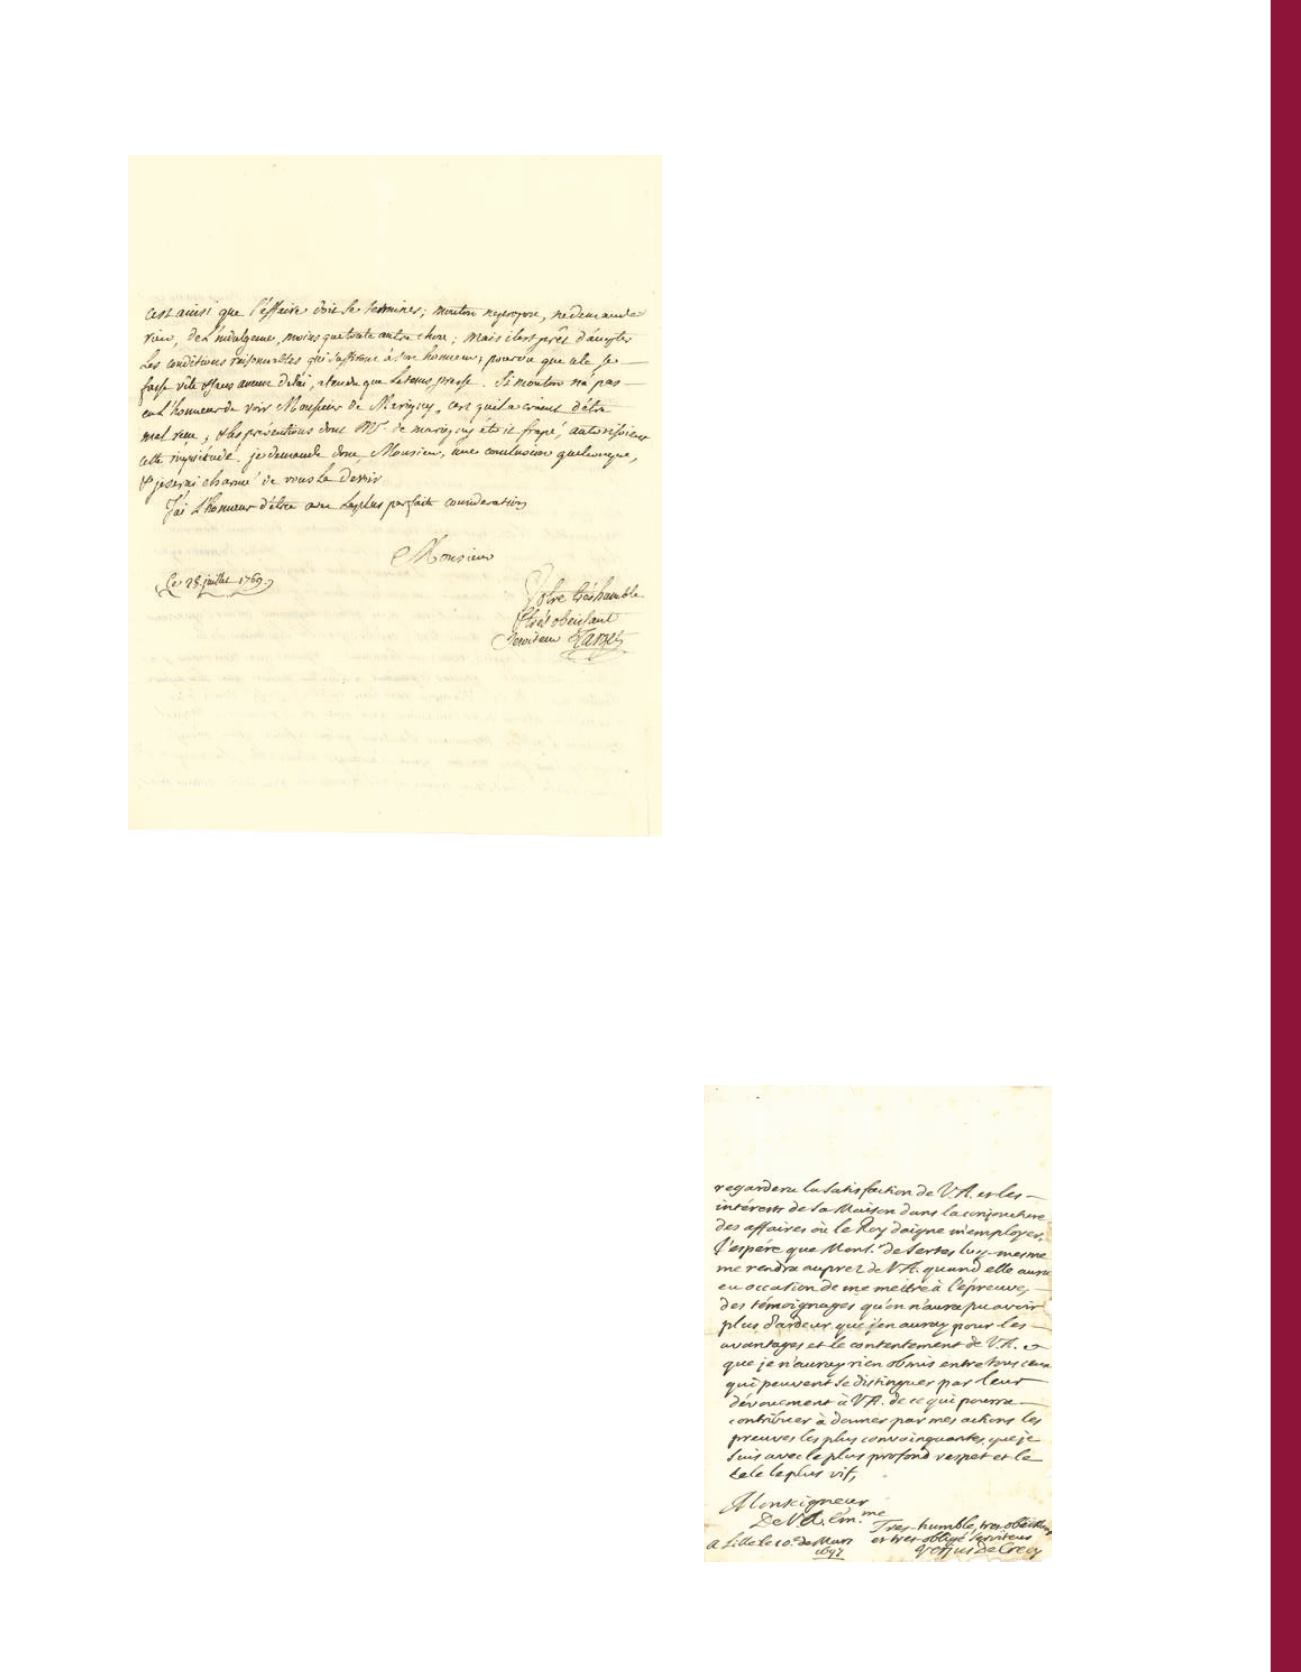 cest ainsi que l'affaire doit se terminer; mouton ne propose, ne demande
rien, de l'indulgence, moins que toute autre chose; mais il est prêt d'accepter
les conditions raisonnables qui suffiront à son honneur; pourvu que cela se
fasse vite & sans aucun delai, attendu que le tems presse. Si mouton n'a pas
eu l'honneur de voir Monsieur de Marigny, cest qu'il a craint d'être
mal reçu; & les préventions dont Mr. de marigny étoit frapé, autorisoient
cette inquiétude. je demande donc, Monsieur, une conclusion quelconque,
& je serai charmé de vous la devoir
J'ai l'honneur d'être avec la plus parfaite consideration
Monsieur
Le 28. juillet 1769.
Votre très humble
& très obeissant
Serviteur Target
regardera la satisfaction de V.A. et les
intérests de sa Maison dans la conjoncture
des affaires où le Roy daigne m'employer.
J'espére que Mons.r de luy-mesme
me rendra auprez de V.A. quand elle aura
eu occation de me mettre à l'épreuve,
des témoignages qu'on n'aura pu avoir
plus d'ardeur que j'en auray pour les
avantages et le contentement de V.A. et
que je n'auray rien obmis entre tous ceux
qui peuvent se distinguer par leur
dévouement à V.A. de ce qui pourra
contribuer à donner par mes actions les
preuves les plus convainquantes, que je
suis avec le plus profond respet et le
zele le plus vif,
Monseigneur
De V.A. Em.me
Tres-humble, tres-obeissant
et tres-obligé serviteur
A Lille le 10.e de Mars
1697
Verjus de Crecy